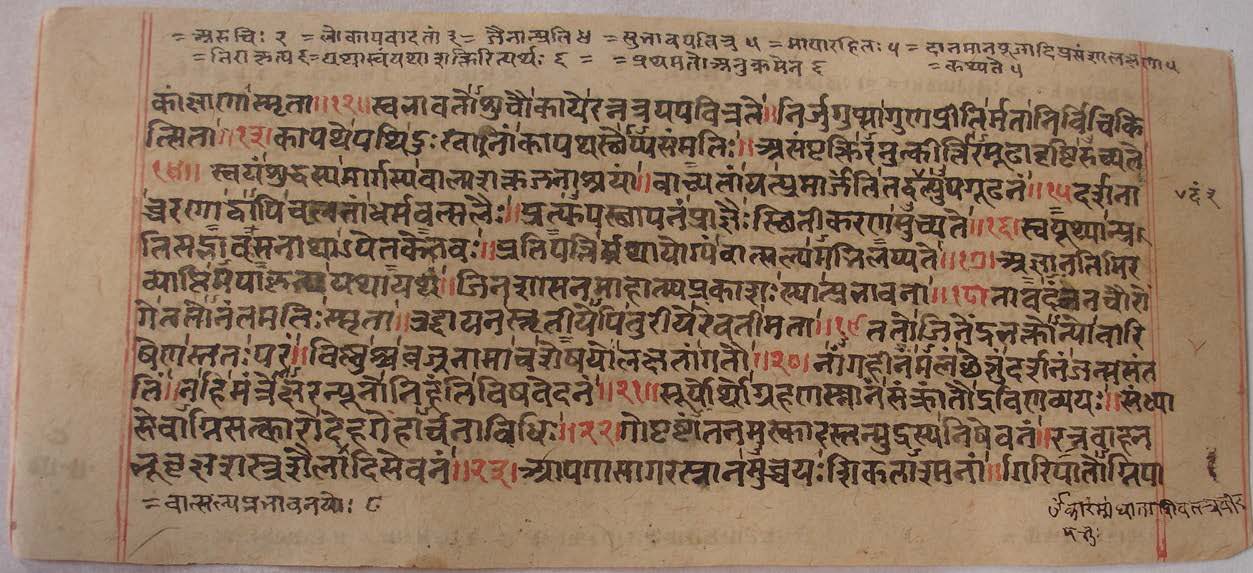 = अरुचिः २ = लोकापवादतां ३ = जैनान्प्रति ४ = सुभावपवित्र ५ = मायारहितः ५ = दानमानपूजादिप्रसंशालक्षणा ५
= निराकृत्य ६ = यथास्वं यथाशक्तिरित्यर्थः ६ = = प्रथमतो अनुक्रमेन ६ = कथ्यते ५
कांक्षणा स्मृता ॥१२॥ स्वभावतो शुचौ काये रत्नत्रयपवित्रते॥ निर्जुगुप्सा गुणप्रीतिर्मता निर्विचिकि
त्सिता ॥१३॥ कापथे पथि दुःखानां कापथस्थेप्यसंमतिः॥ असंपृक्तिरनुत्कीर्त्तिरमूढा दृष्टिरुच्यते
॥१४॥ स्वयं शुद्धस्य मार्गस्य बालाशक्तजनाश्रयां॥ वाच्यतां यत्प्रमार्जंति तद्वदंत्युपगूहनं ॥१५ दर्शना
च्चरणाद्वापि चलतां धर्मवत्सलैः॥ प्रत्यवस्थापनं प्राज्ञैः स्थितीकरणमुच्यते ॥१६॥ स्वयूथ्यान्प्र
ति सद्भावसनाथाऽपेतकैतवः॥ प्रतिपत्तिर्यथायोग्यं वात्सल्यमभिलप्यते ॥१७॥ अज्ञानतिमिर
व्याप्तिमपाकृत्य यथायथं॥ जिनशासनमाहात्म्यप्रकाशः स्यात्प्रभावना ॥१८॥ तावदंजनचौरो
गे ततोनंतमतिः स्मृता॥ उद्दायनस्तृतीयेपि तुरीये रेवती मता ॥१९ ततो जिनेंद्रभक्तोन्यो वारि
षेणस्ततः परं॥ विष्णुश्च वज्रनामा च शेषयोर्लक्षतां गतौ ॥२०॥ नांगहीनमलं छेत्तुं दर्शनं जन्मसंत
तिं॥ न हि मंत्रोक्षरन्यूनो निहंति विषवेदनां ॥२१॥ सूर्यार्घो ग्रहणस्नानं संक्रांतौ द्रविणव्ययः॥ संध्या
सेवाग्निसत्कारो देहगेहार्चनाविधिः ॥२२॥ गोपृष्टांतनमस्कारस्तन्मूत्रस्य निषेवनं॥ रत्नवाहन
भूवृक्षशस्त्रशैलादिसेवनं ॥२३॥ आपगासागरस्नानमुच्चयः सिकताश्मनां॥ गिरिपातोग्निपा
= वात्सल्यप्रभावनयोः ८